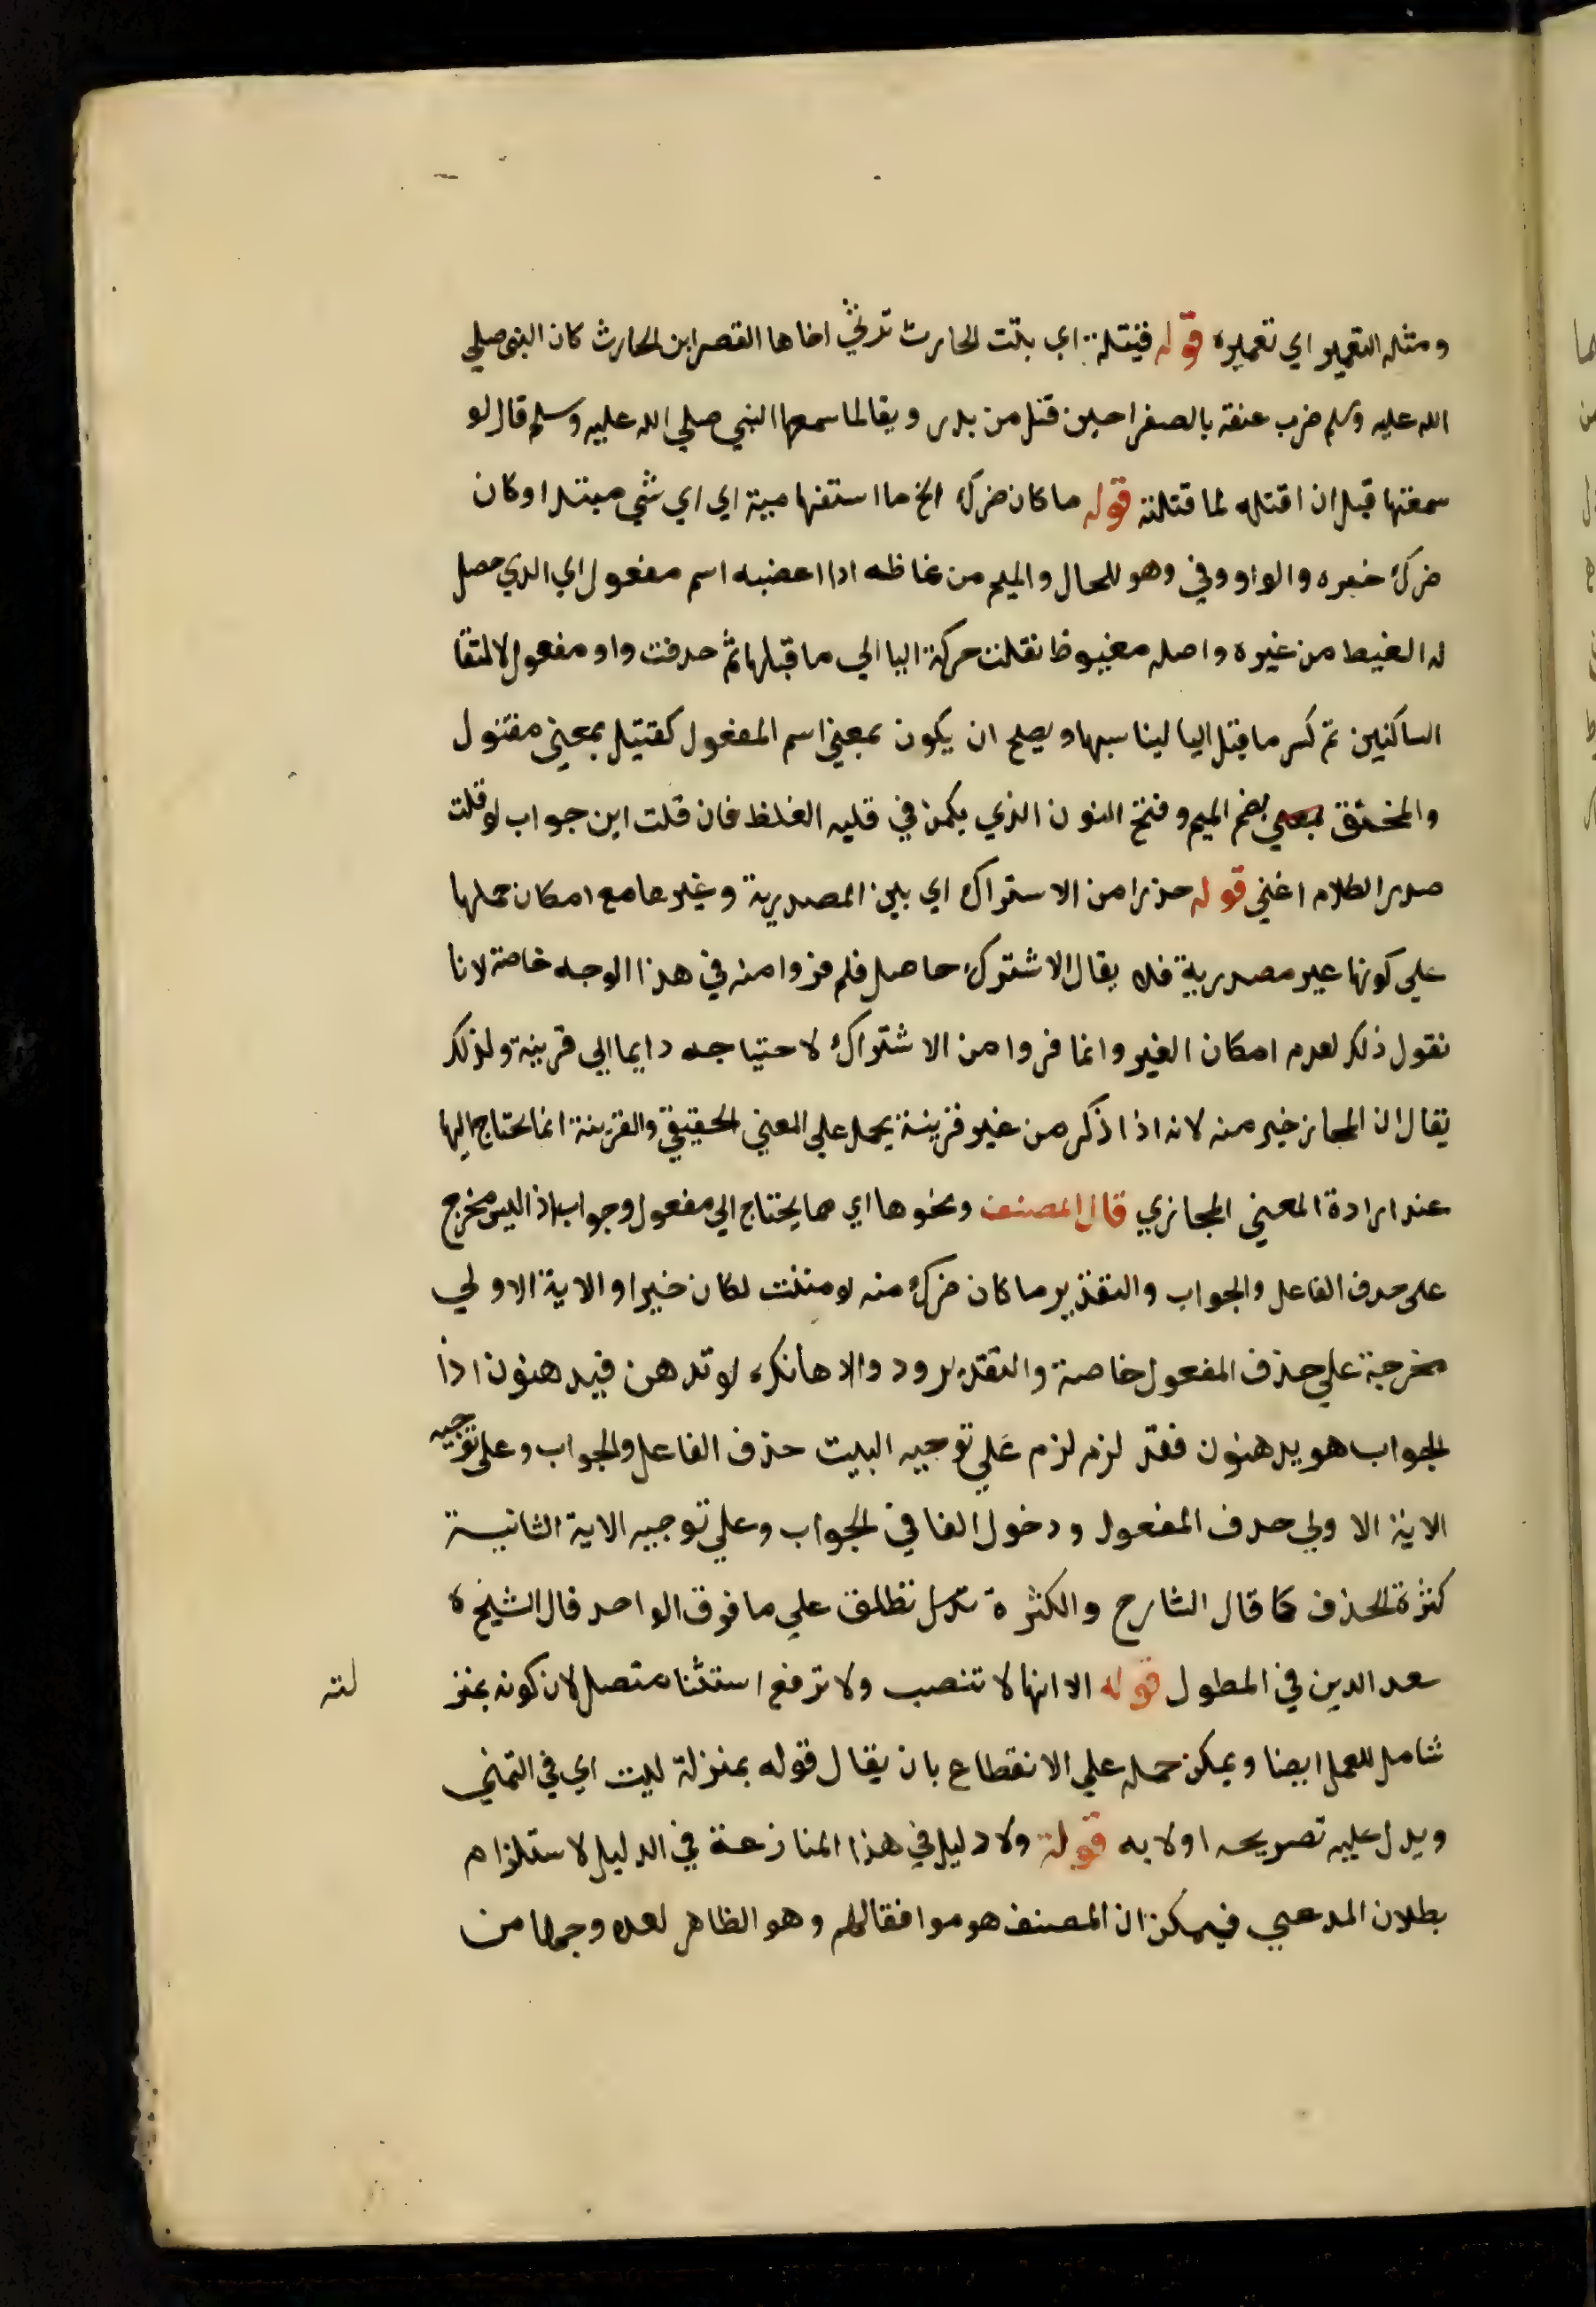 ومثله التعمير اي تعميره قوله قيتلة اي بنت الحارث ترثي اخاها القصر ابن الحارث كان النبي صلي
الله عليه وسلم ضرب عنقه بالصفرا حين قتل من بدر ويقال لما سمعها النبي صلي الله عليه وسلم قال لو
سمعتها قبل ان اقتله لما قتلته قوله ما كان ضرك الخ ما استفهامية اي اي شي مبتدا وكان
ضرك خبره والواو وفي وهو للحال والميم من غاظه اذا اغضبه اسم مفعول اي الذي حصل
له الغيط من غيره واصله مغيوظ نقلت حركة اليا الي ما قبلها ثم حدفت واو مفعول لالتقا
الساكنين ثم كسر ما قبل اليا ليناسبها ويصلح ان يكون بمعني اسم المفعول كقتيل بمعني مقتول
والمخنق بضم الميم وفتح النون الذي يكمن في قلبه الغلظ فان قلت اين جواب لو قلت
صدر الكلام اغني قوله حذرا من الاستراك اي بين المصدرية وغيرها مع امكان حملها
علي كونها غير مصدرية فلا يقال الاشترك حاصل فلم فروا منه في هذا الوجه خاصة لانا
نقول ذلك لعدم امكان الغير وانما فروا من الاشتراك لاحتياجه دايما الي قرينة ولذلك
يقال ان المجاز خير منه لانه اذا ذكر من غير قرينة يحمل علي المعني الحقيقي والقرينة انما يحتاج اليها
عند ارادة المعني المجازي قال المصنف ونحوها اي مما يحتاج الي مفعول وجواب اذ البيت مخرج
على حدف الفاعل والجواب والتقدير ما كان ضرك منه لو مننت لكان خيرا والاية الاولي
مخرجة علي حذف المفعول خاصة والتقدير ودوا الادهانك لو تدهن فيدهنون اذا
الجواب هو يدهنون فقد لزم لزم علي توجيه البيت حذف الفاعل والجواب وعلى توجيه
الاية الاولي حدف المفعول ودخول الفا في الجواب وعلي توجيه الاية الثانية
كثرة الحذف كما قال الشارح والكثرة تطلق علي ما فوق الواحد قال الشيخ
سعد الدين في المطول قوله الا انها لا تنصب ولا ترفع استثنا متصل لان كونه بمنز لته
شامل للعمل ايضا ويمكن حمله علي الانقطاع بان يقال قوله بمنزلة ليت اي في التمني
ويدل عليه تصريحه اولا به قوله ولا دليل في هذا المنازعة في الدليل لاستلزام
بطلان المدعي فيمكن ان المصنف هو موافقا لهم وهو الظاهر لعده وجها من